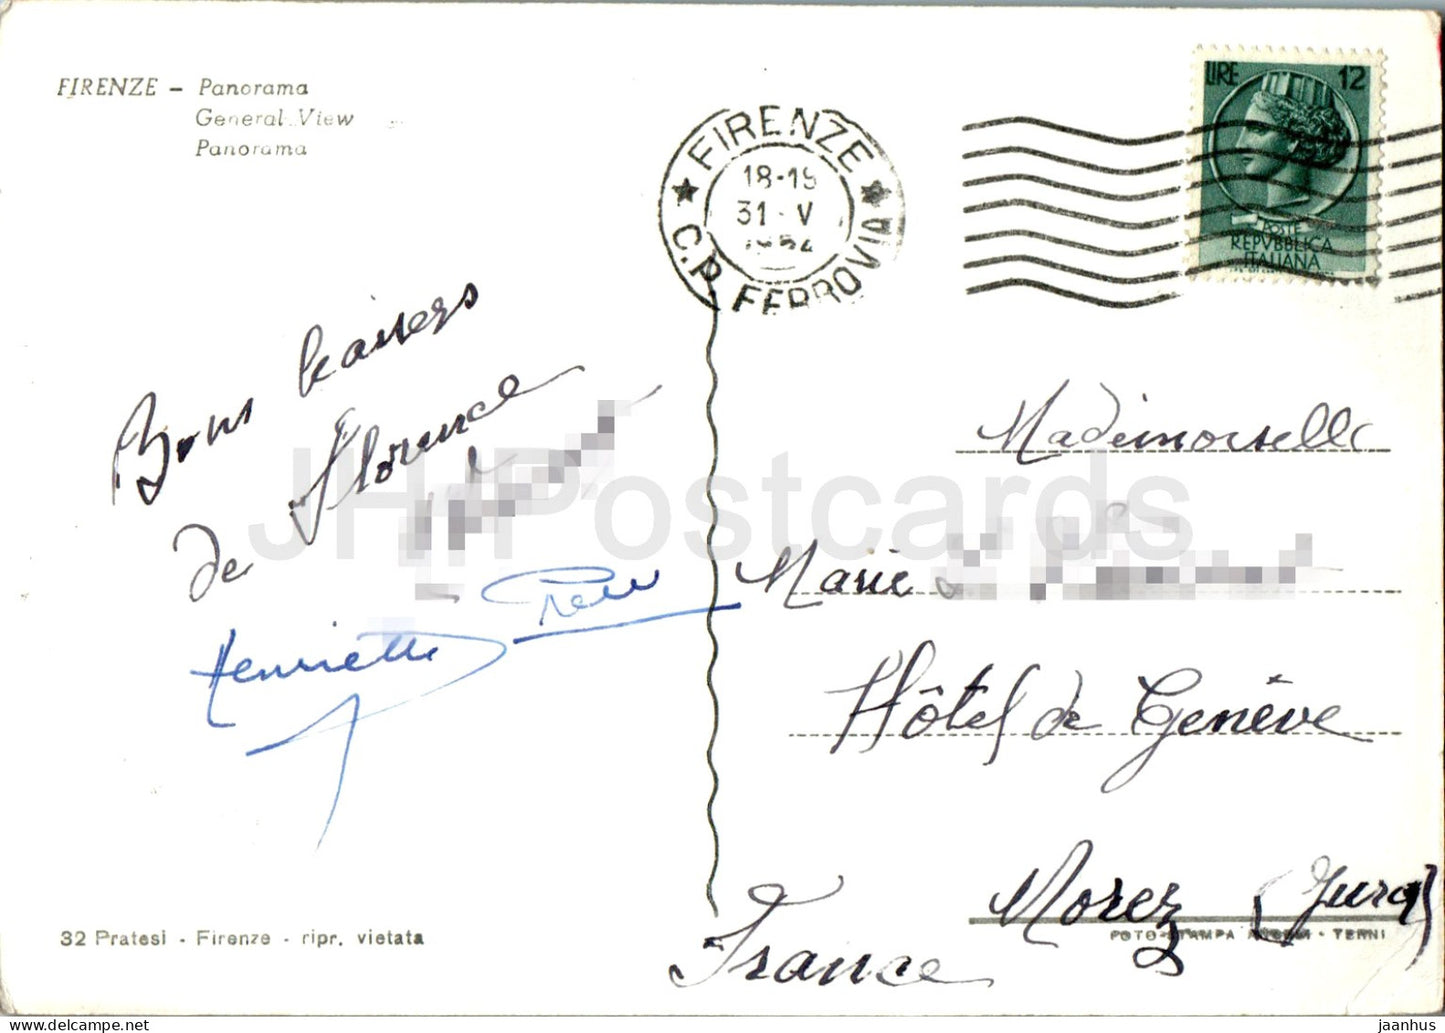 FIRENZE - Panorama
General View
Panorama
FIRENZE
18-19
31 V
1954
C.P. FERROVIA
LIRE 12
POSTE
REPVBBLICA
ITALIANA
Bons baisers
de Florence
Henriette
Mademoiselle
Marie
Hôtel de Genève
Morez (Jura)
France
32 Pratesi - Firenze - ripr. vietata
FOTO-STAMPA - TERNI
JH Postcards
jaanhus